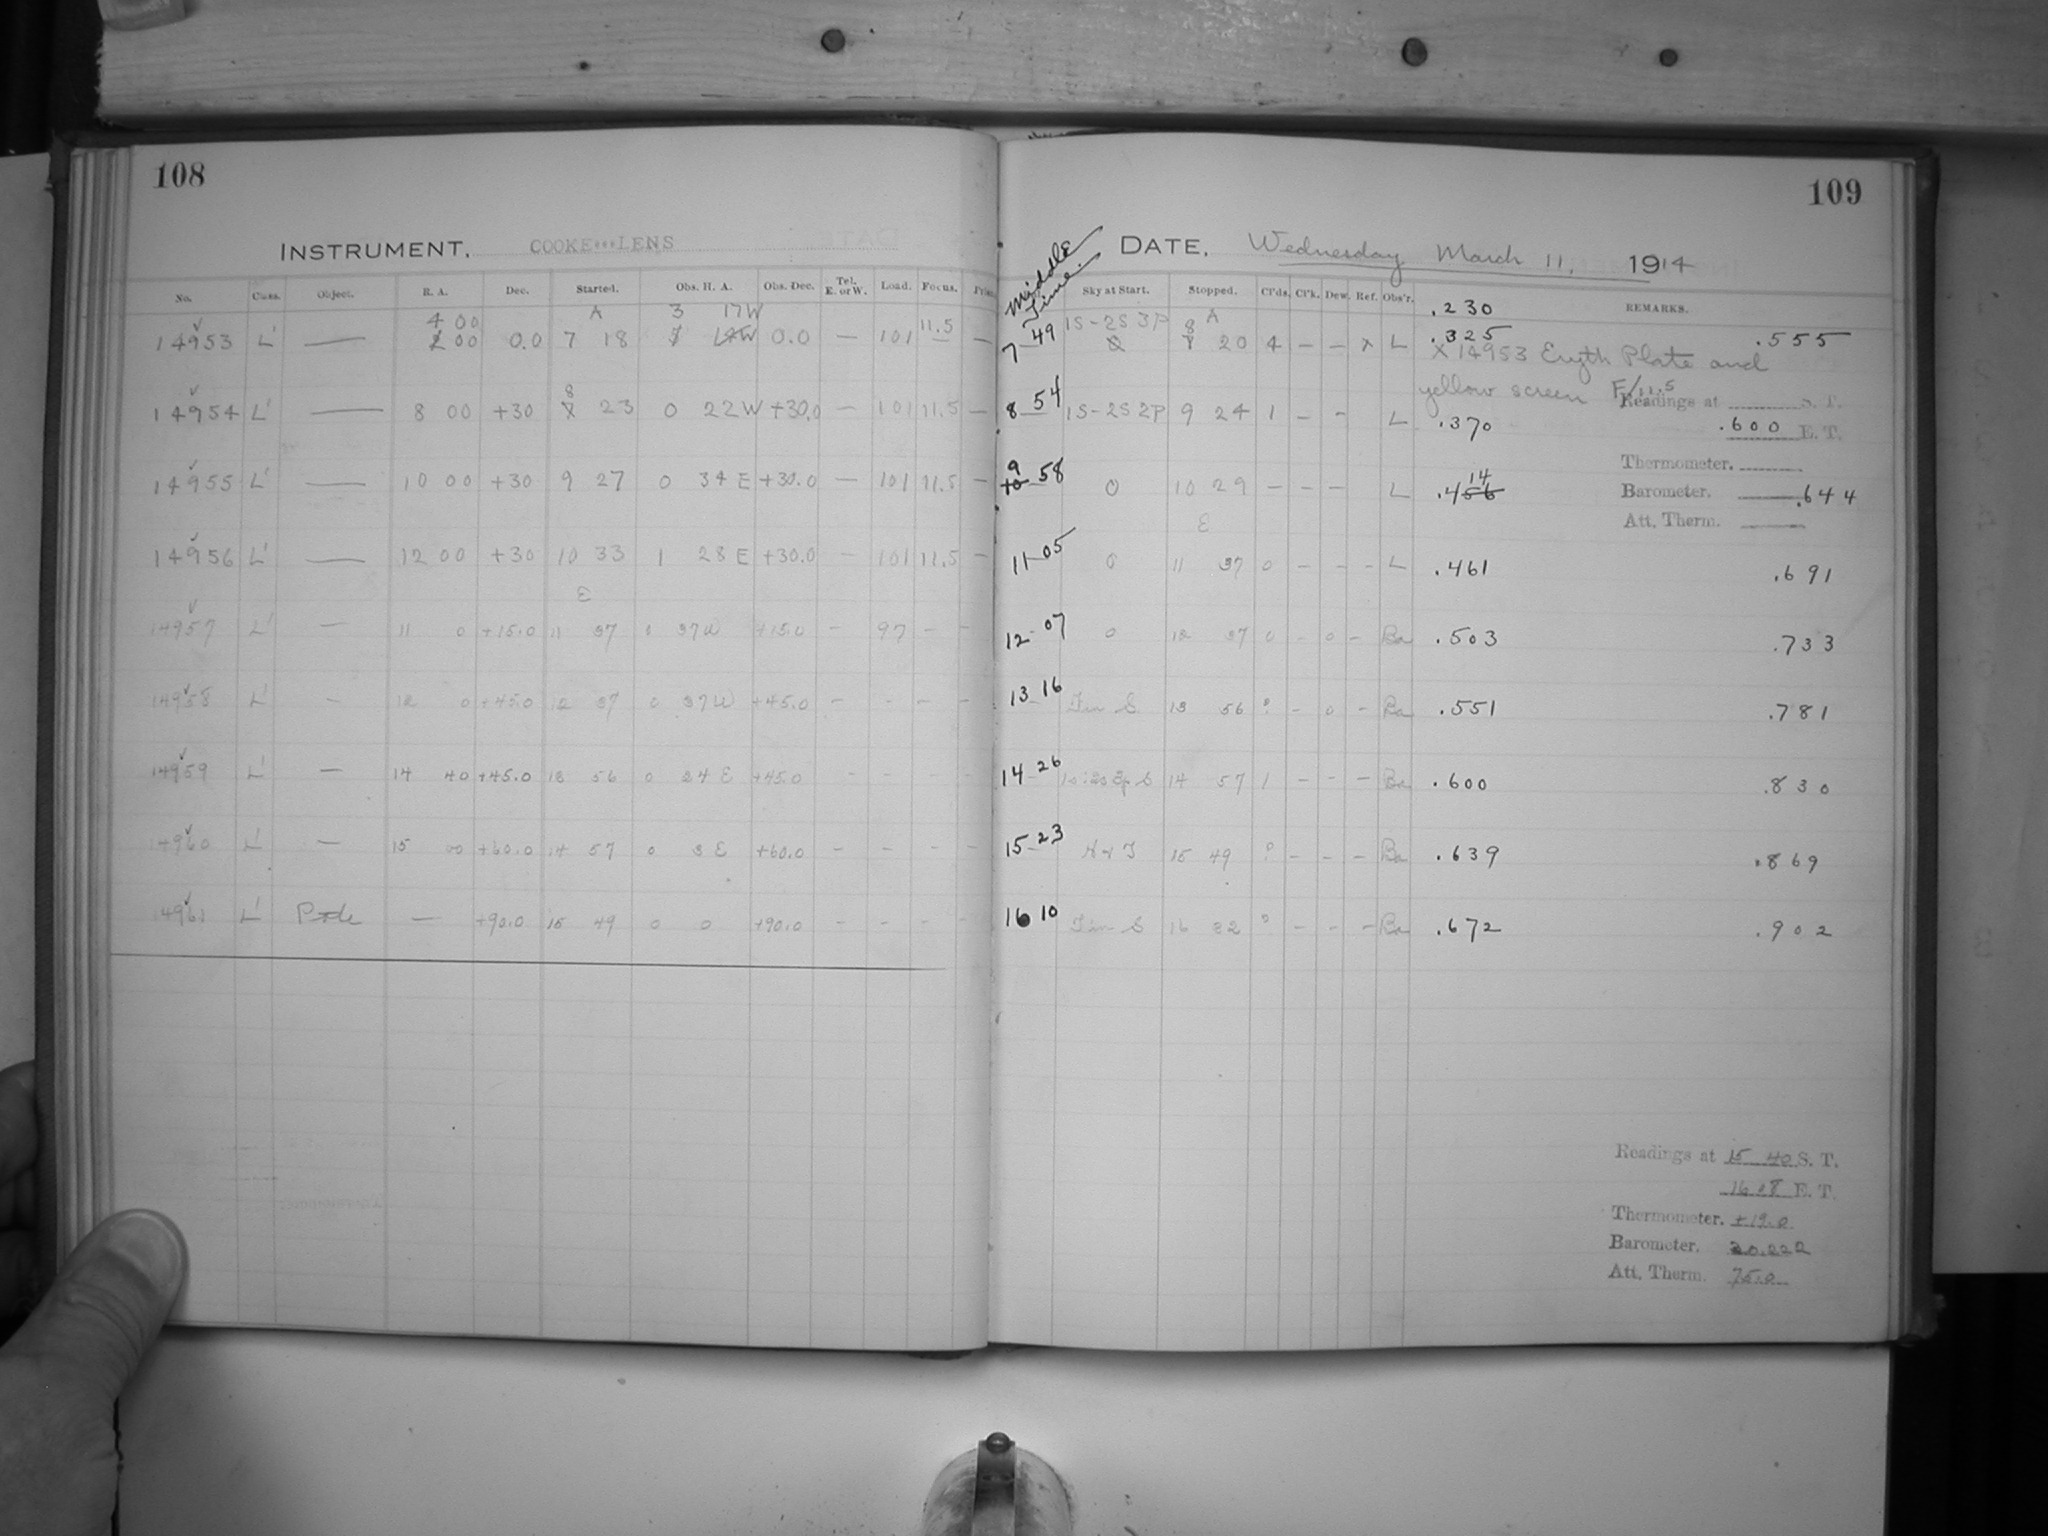 108
INSTRUMENT. COOKE LENS
No. Class. Object. R. A. Dec. Started. Obs. H. A. Obs. Dec. Tel. E. or W. Load. Focus.
4 00 A 3 17W 11.5
14953 L' — 00 0.0 7 18 0.0 — 101 — —
8
14954 L' — 8 00 +30 23 0 22W +30.0 — 101 11.5 —
14955 L' — 10 00 +30 9 27 0 34 E +30.0 — 101 11.5 —
14956 L' — 12 00 +30 10 33 1 28 E +30.0 — 101 11.5 —
E
14957 L' — 11 0 +15.0 11 37 0 37W +15.0 — 97 — —
14958 L' — 12 0 +45.0 12 37 0 37W +45.0 — - - -
14959 L' — 14 40 +45.0 13 56 0 34 E +45.0 - - - -
14960 L' — 15 00 +60.0 14 57 0 3 E +60.0 - - - -
14961 L' Pole — +90.0 15 49 0 0 +90.0 - - - -
109
Middle Time.
DATE, Wednesday March 11, 1914
Sky at Start. Stopped. Cl'ds. Cl'k. Dew. Ref. Obs'r. REMARKS.
.230
7 49 1S-2S 3P 8 A 20 4 — — x L .325 .555
X 14953 Eryth Plate and
yellow screen F/11.5
8 54 1S-2S 2P 9 24 1 - - L .370
Readings at S. T.
.600 E. T.
Thermometer.
9 58 0 10 29 — — — L .414 Barometer. .644
E
Att. Therm.
11 05 0 11 37 0 - - - L .461 .691
12 07 0 12 37 0 - 0 - Ba .503 .733
13 16 13 56 ? - 0 - Ba .551 .781
14 26 14 57 1 - - - Ba .600 .830
15 23 15 49 ? - - - Ba .639 .869
16 10 16 32 ? - - - Ba .672 .902
Readings at 15 40 S. T.
16 08 E. T.
Thermometer. +19.0
Barometer. 30.222
Att. Therm. 75.0